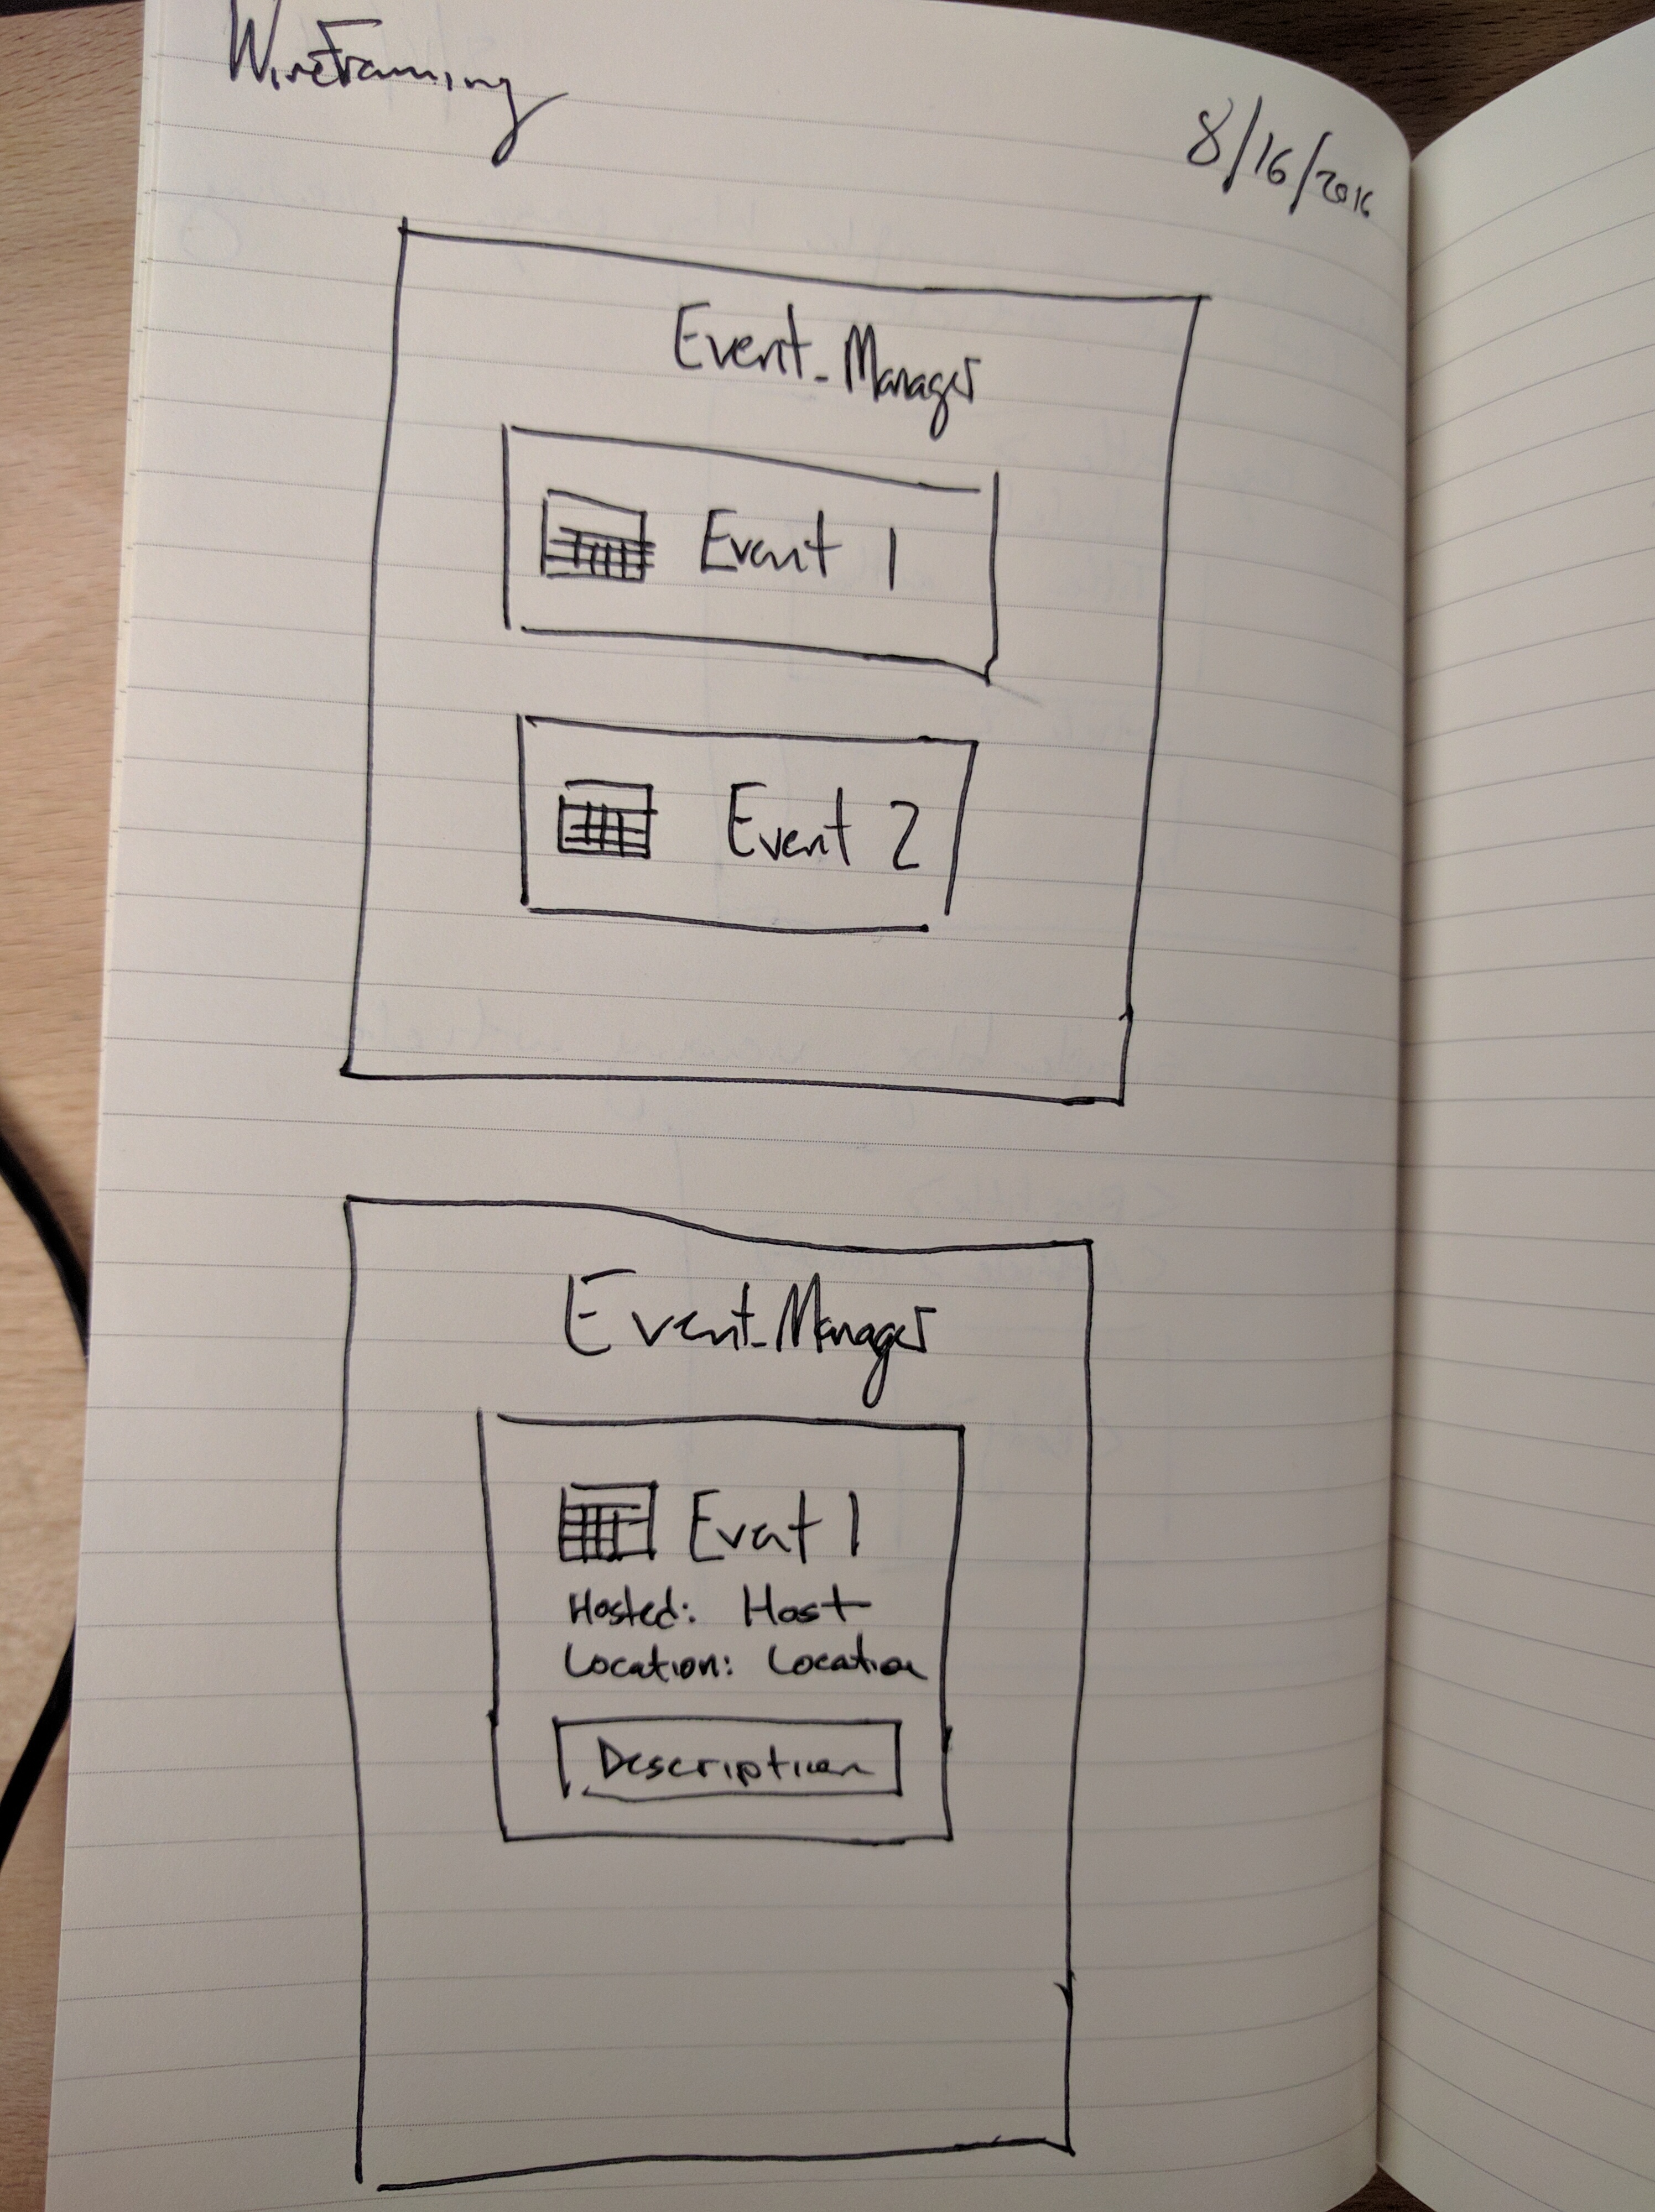 WireFraming
8/16/2016
Event_Manager
Event 1
Event 2
Event_Manager
Event 1
Hosted: Host
Location: Location
Description